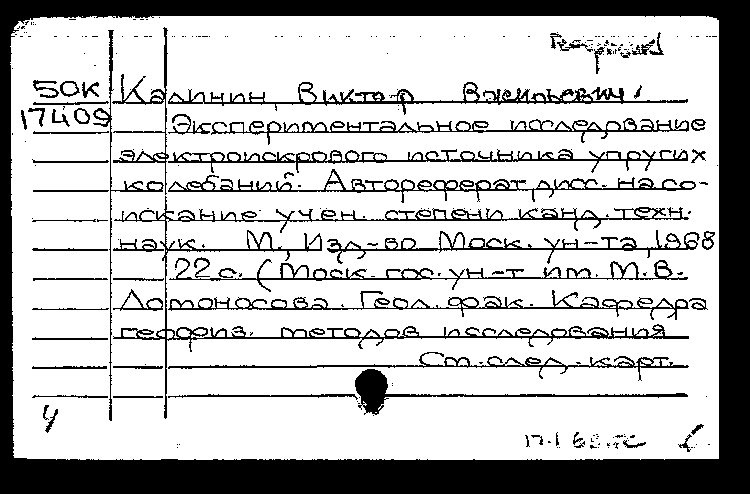 50К Калинин, Виктор Васильевич.
17409 Экспериментальное исследование
электроискрового источника упругих
колебаний. Автореферат дисс. на со-
искание учен. степени канд. техн.
наук. М., Изд-во Моск. ун-та, 1968
22 с. (Моск. гос. ун-т им. М.В.
Ломоносова. Геол. фак. Кафедра
геофиз. методов исследования
См. след. карт.